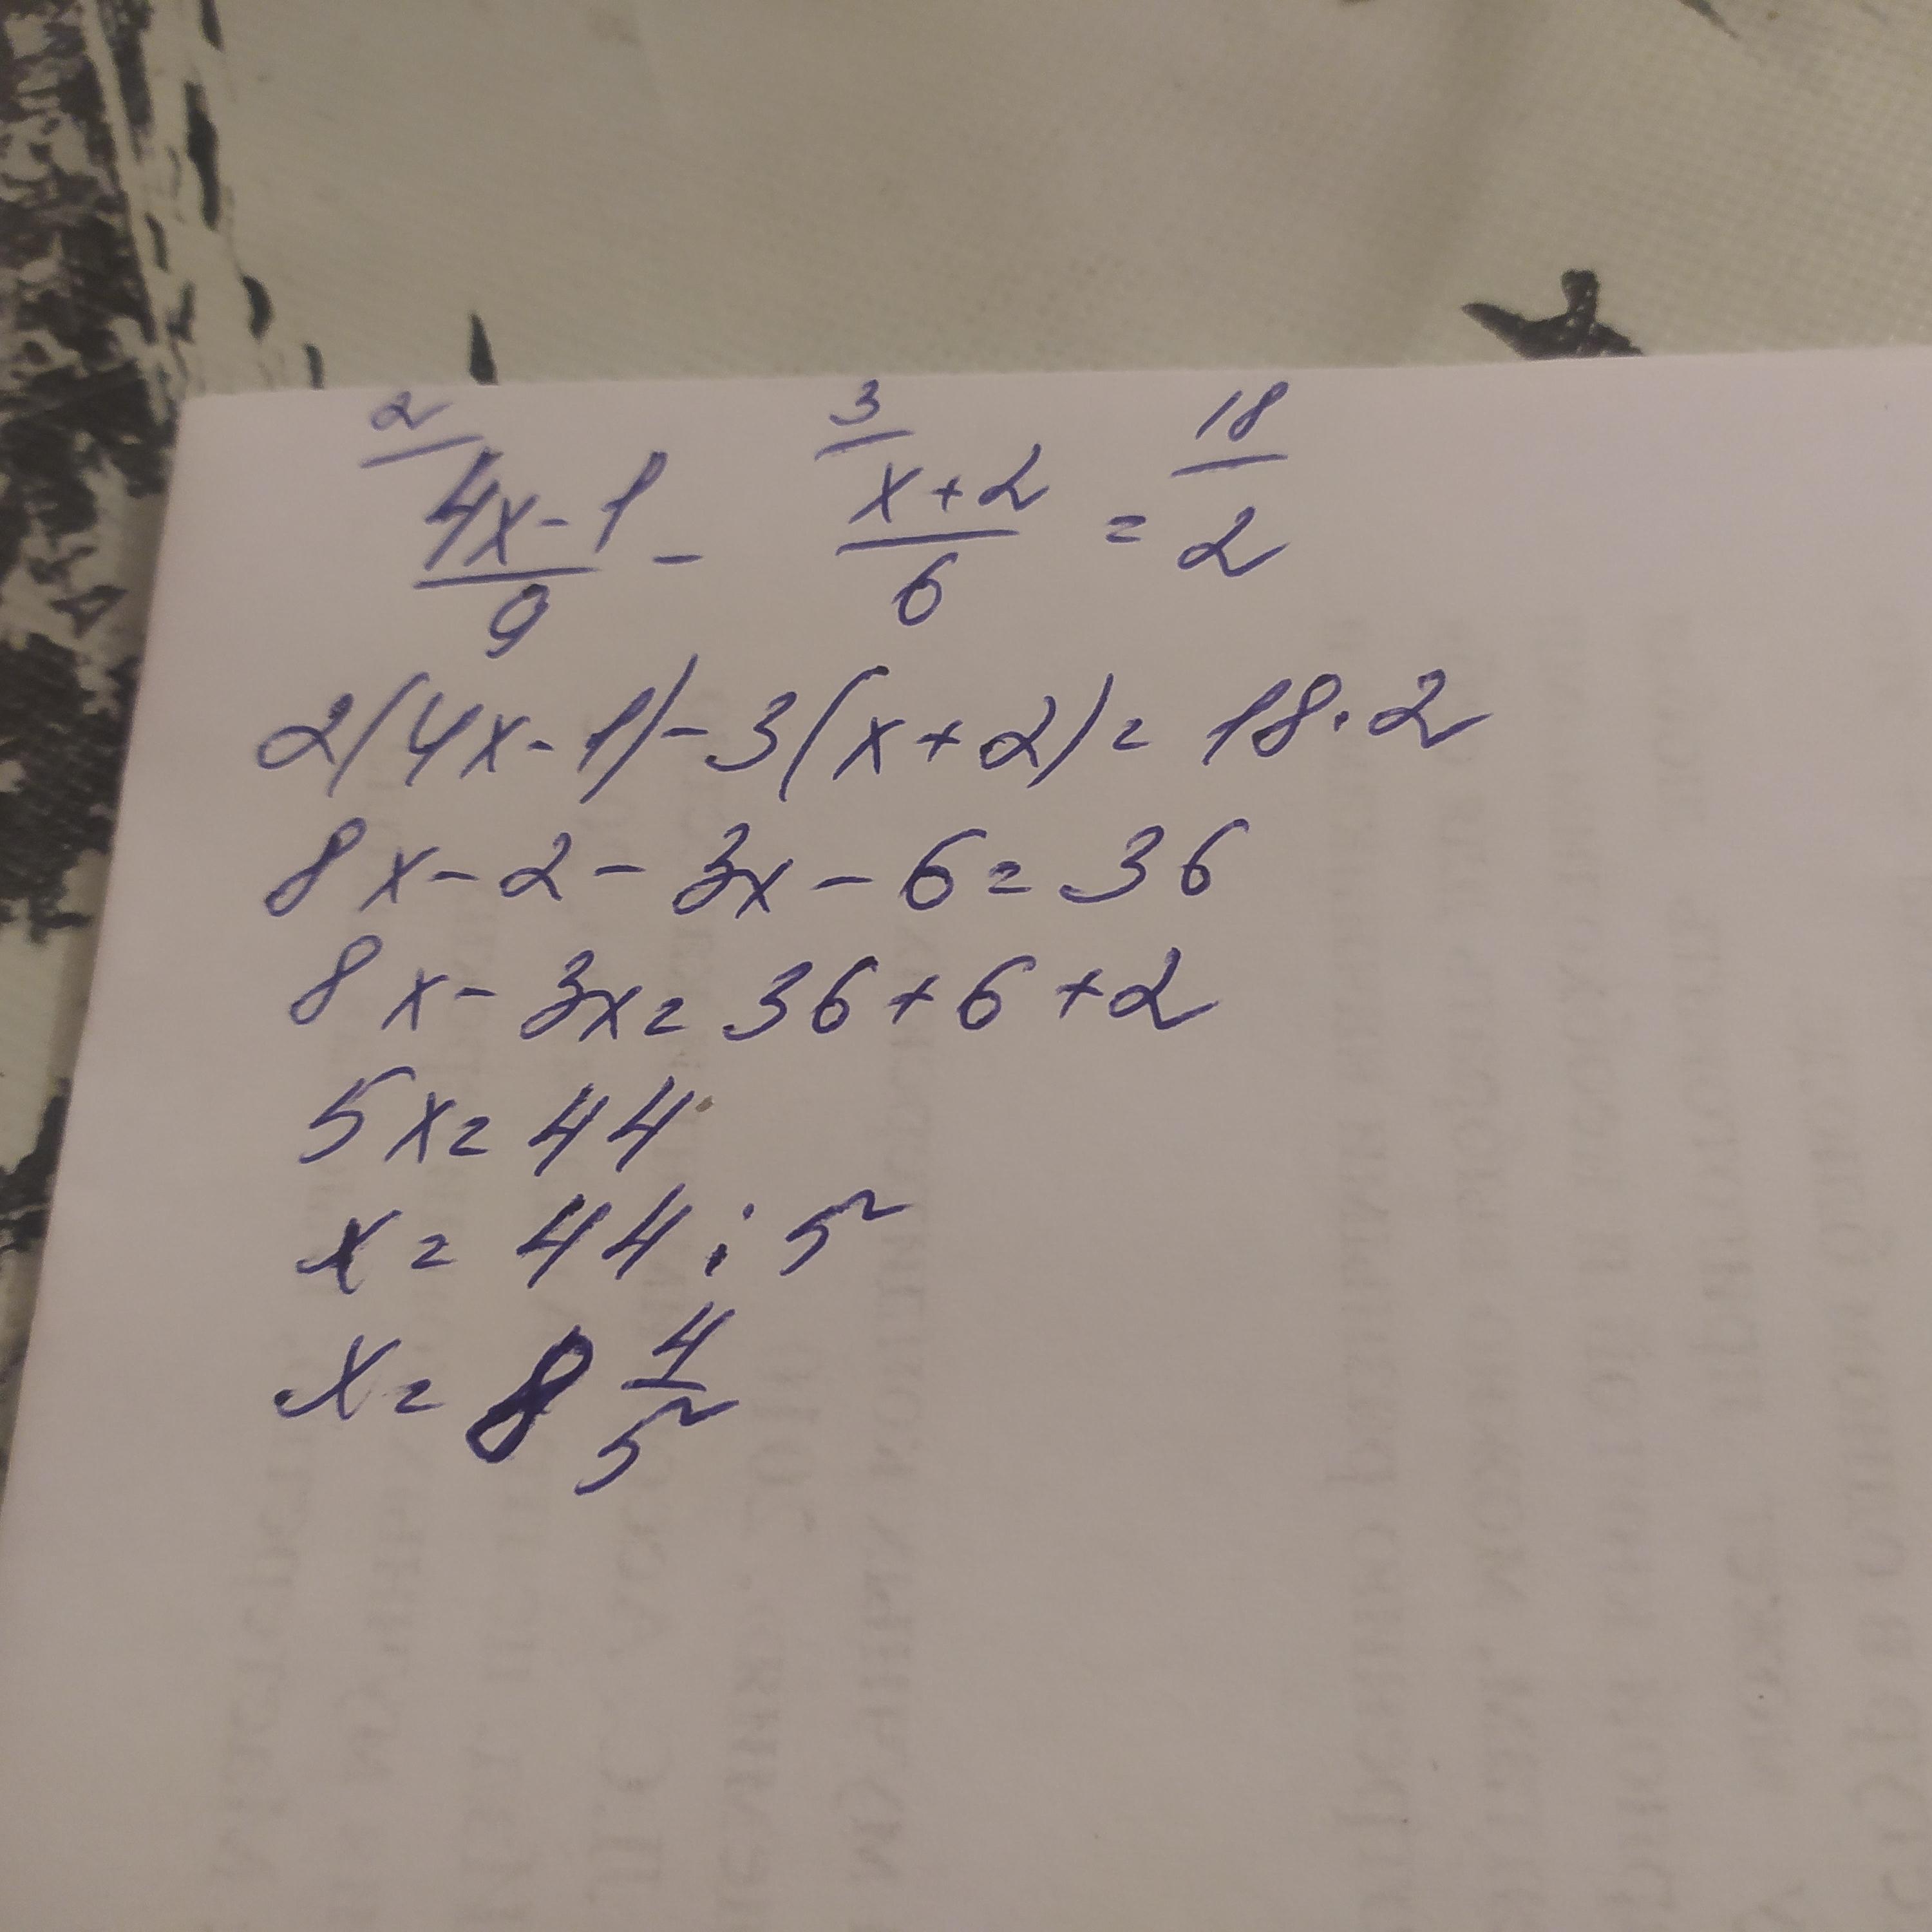 2/ 3/ 18/
4x-1/9 - x+2/6 = 2
2(4x-1)-3(x+2)=18·2
8x-2-3x-6=36
8x-3x=36+6+2
5x=44
x=44:5
x=8 4/5